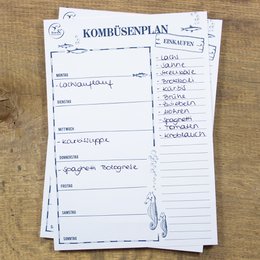 KOMBÜSENPLAN
EINKAUFEN
MONTAG
- Lachsauflauf
DIENSTAG
MITTWOCH
- Kürbissuppe
DONNERSTAG
- Spaghetti Bolognese
FREITAG
SAMSTAG
SONNTAG
- Lachs
- Sahne
- Streukäse
- Brokkoli
- Kürbis
- Brühe
- Zwiebeln
- Möhren
- Spaghetti
- Tomaten
- Knoblauch